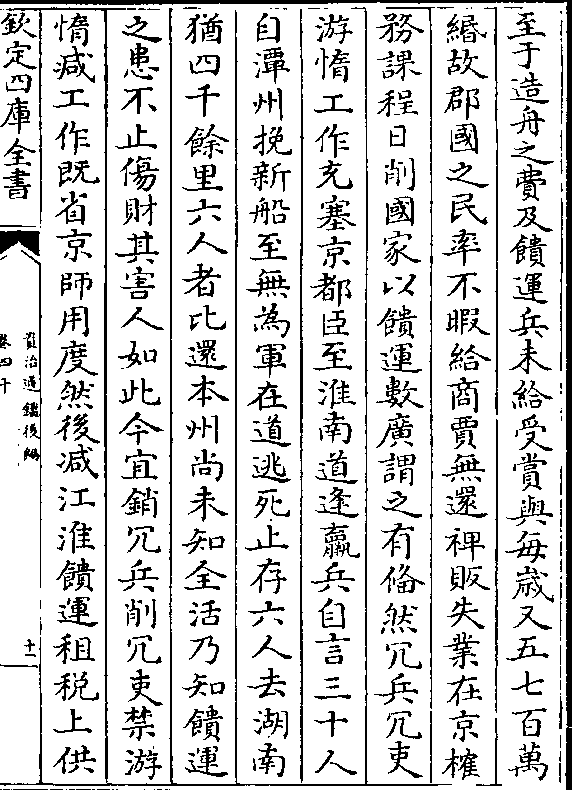 至于造舟之費及饋運兵未給受賞與毎歳又五七百萬
緡故郡國之民率不暇給商賈無還裨販失業在京榷
務課程日削國家以饋運數廣謂之有偹然冗兵冗吏
游惰工作充塞京都臣至淮南道逢羸兵自言三十人
自潭州挽新船至無為軍在道逃死止存六人去湖南
猶四千餘里六人者比還本州尚未知全活乃知饋運
之患不止傷財其害人如此今宜銷冗兵削冗吏禁游
惰減工作既省京師用度然後減江淮饋運租税上供
欽定四庫全書
資治通鑑後編
卷四十
十一